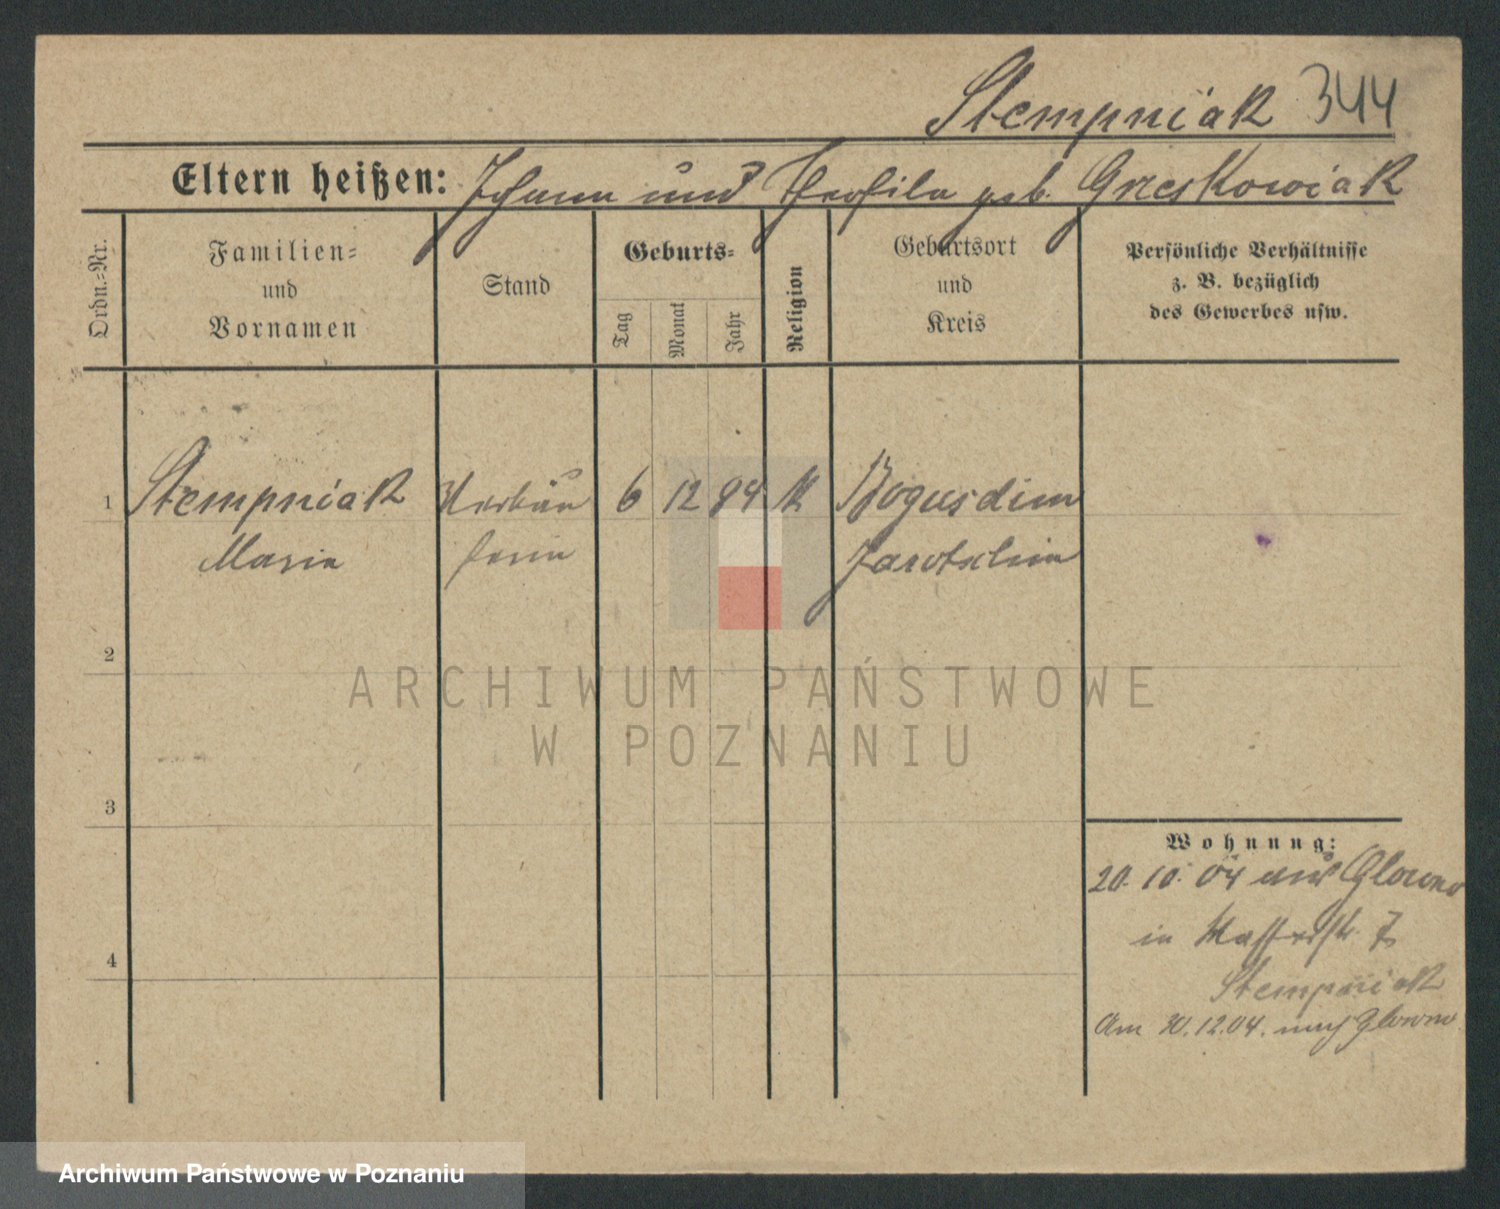 Stempniak 344
Eltern heißen: Johann und Theofila geb. Grzeskowiak
Ordn.=Nr.
Familien=
und
Vornamen
Stand
Geburts=
Tag
Monat
Jahr
Religion
Geburtsort
und
Kreis
Persönliche Verhältnisse
z. B. bezüglich
des Gewerbes usw.
1 Stempniak Verkäu 6 12 84 K Bogusdim
Maria ferin Jarotschin
2
3
4
Wohnung:
20. 10. 04 aus Glowno
in Wasserstr. 7
Stempniak
Am 30.12.04. nach Glowno
ARCHIWUM PAŃSTWOWE
W POZNANIU
Archiwum Państwowe w Poznaniu